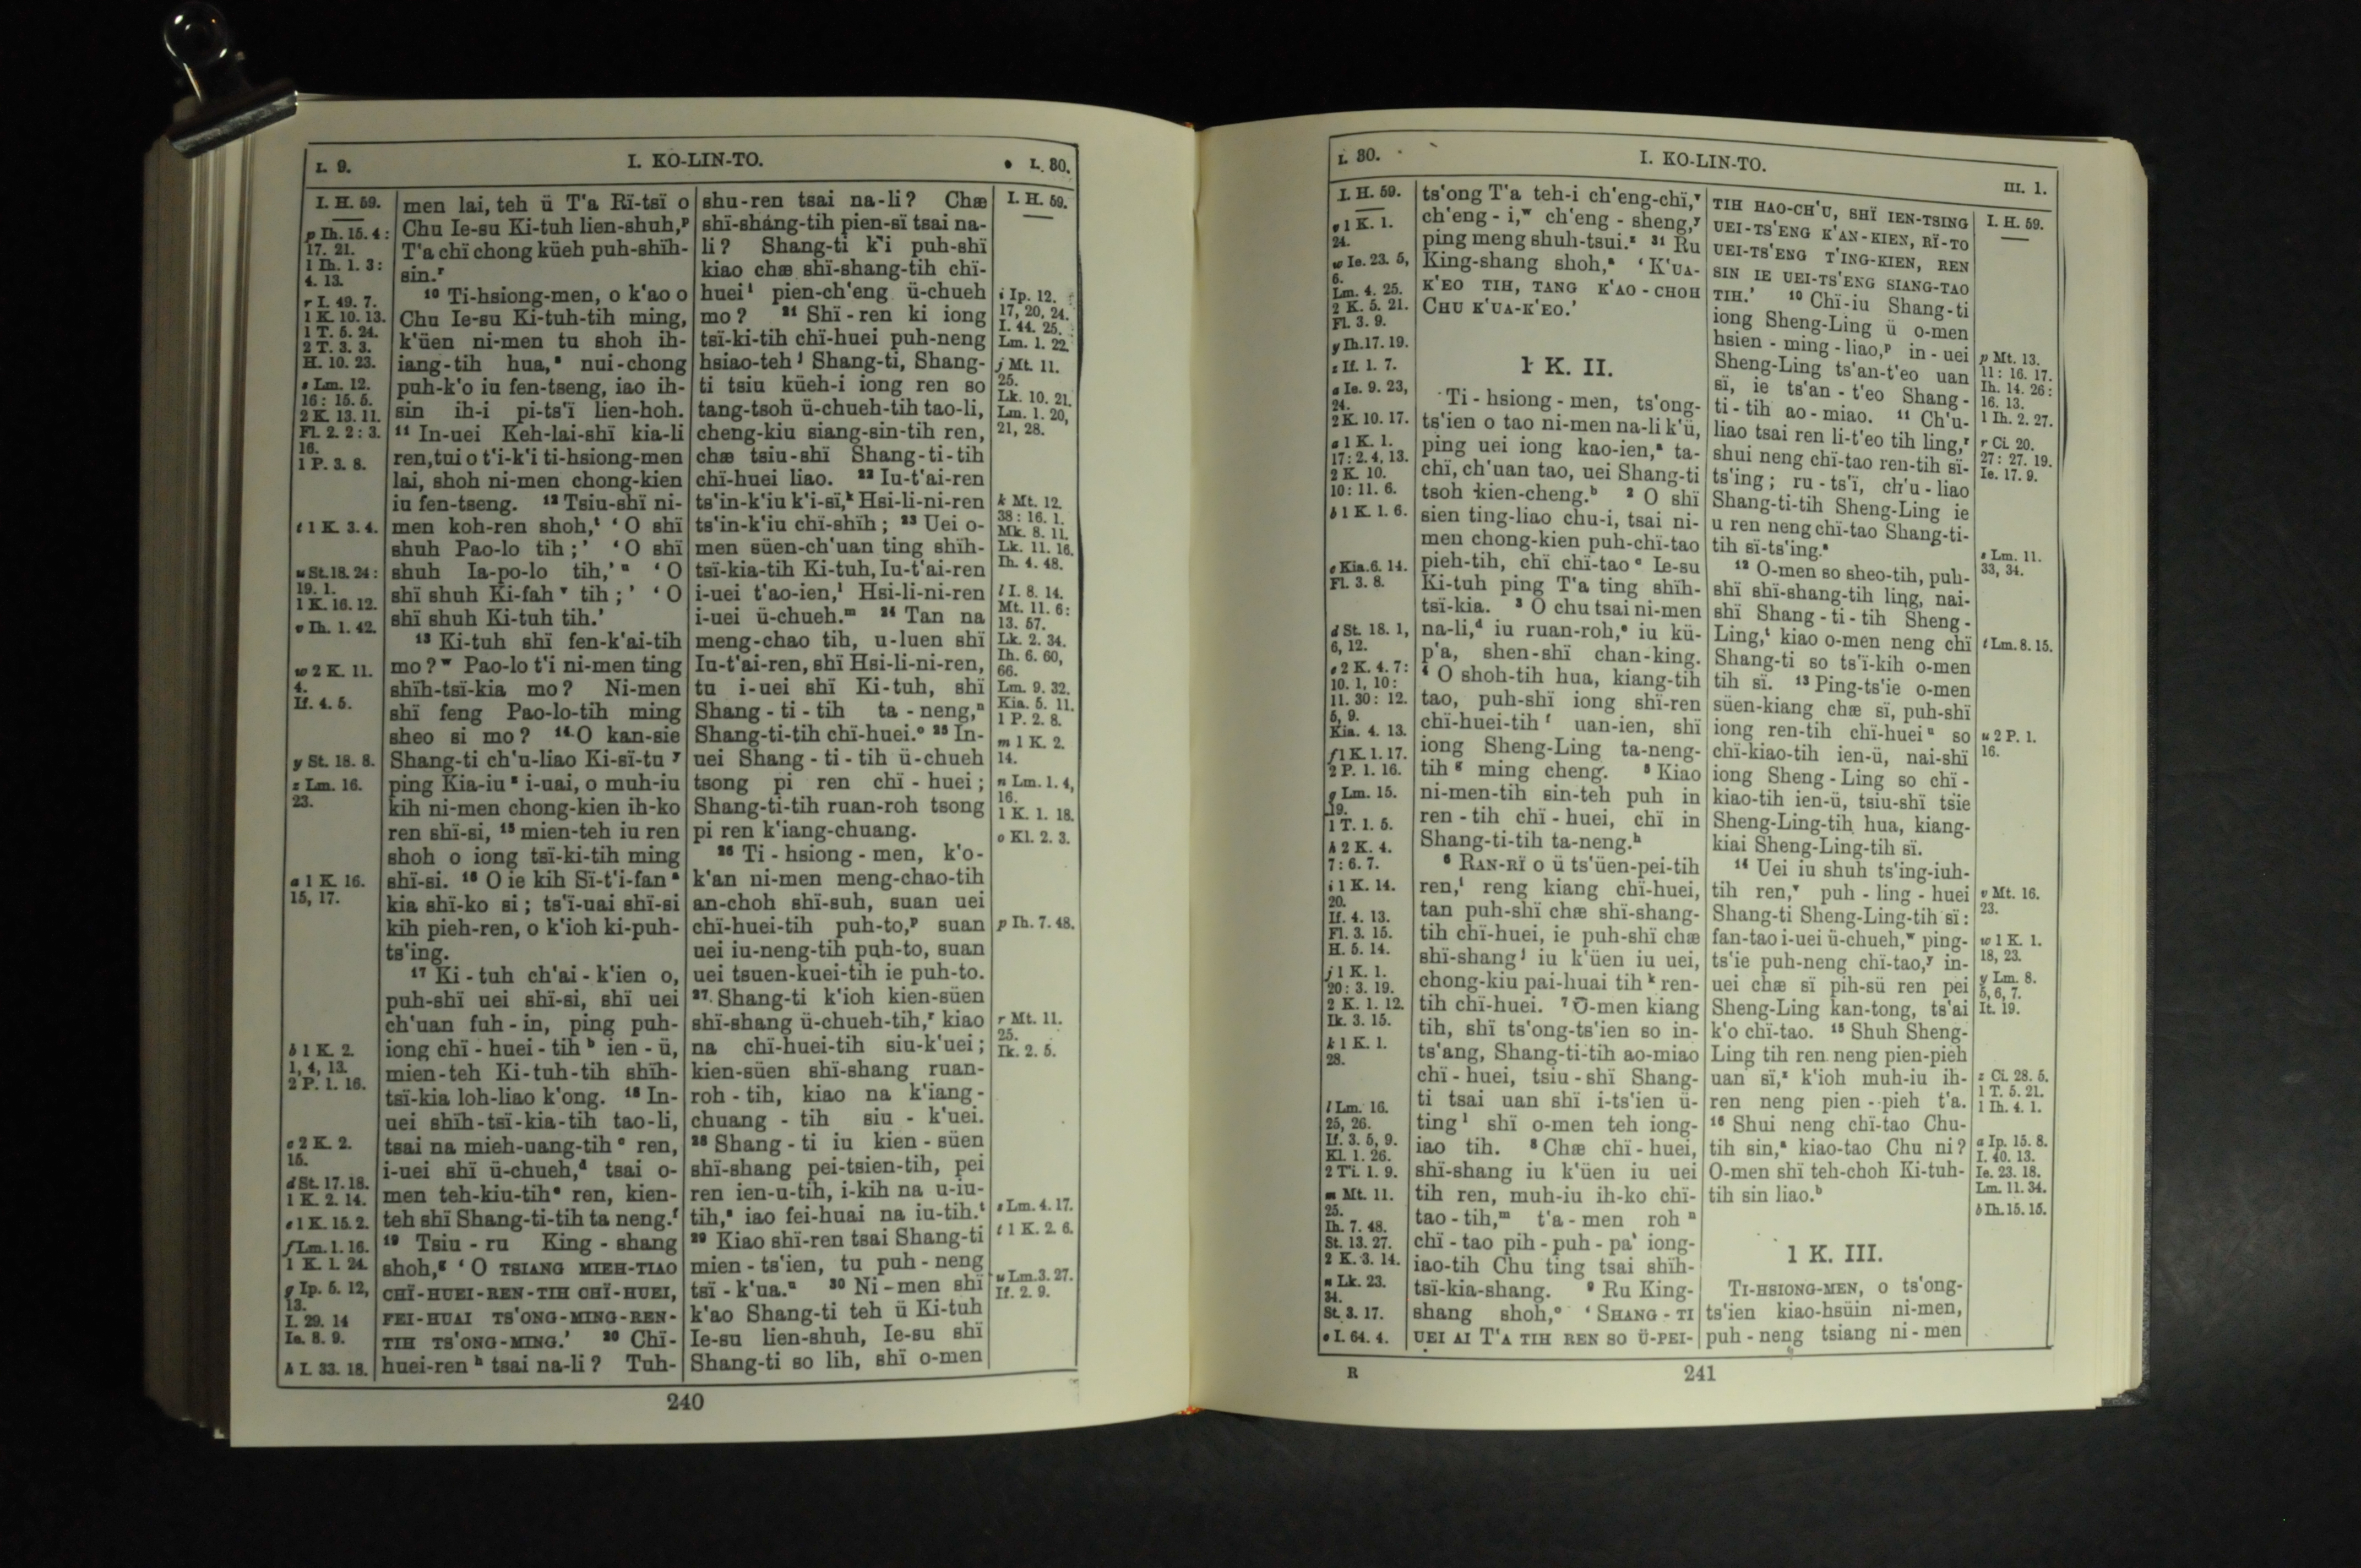 I. 9.
I. KO-LIN-TO.
I. 30.
I. H. 59.
p Ih. 15. 4 :
17. 21.
1 Ih. 1. 3 :
4. 13.
r I. 49. 7.
1 K. 10. 13.
1 T. 5. 24.
2 T. 3. 3.
H. 10. 23.
s Lm. 12.
16 : 15. 5.
2 K. 13. 11.
Fl. 2. 2 : 3.
16.
1 P. 3. 8.
t 1 K. 3. 4.
u St. 18. 24 :
19. 1.
1 K. 16. 12.
v Ih. 1. 42.
w 2 K. 11.
4.
If. 4. 5.
y St. 18. 8.
z Lm. 16.
23.
a 1 K. 16.
15, 17.
b 1 K. 2.
1, 4, 13.
2 P. 1. 16.
c 2 K. 2.
15.
d St. 17. 18.
1 K. 2. 14.
e 1 K. 15. 2.
f Lm. 1. 16.
1 K. 1. 24.
g Ip. 5. 12,
13.
I. 29. 14
Ie. 8. 9.
h I. 33. 18.
men lai, teh ü T'a Rï-tsï o
Chu Ie-su Ki-tuh lien-shuh,ᵖ
T'a chï chong küeh puh-shïh-
sin.ʳ
¹⁰ Ti-hsiong-men, o k'ao o
Chu Ie-su Ki-tuh-tih ming,
k'üen ni-men tu shoh ih-
iang-tih hua,ˢ nui-chong
puh-k'o iu fen-tseng, iao ih-
sin ih-i pi-ts'ï lien-hoh.
¹¹ In-uei Keh-lai-shï kia-li
ren, tui o t'i-k'i ti-hsiong-men
lai, shoh ni-men chong-kien
iu fen-tseng. ¹² Tsiu-shï ni-
men koh-ren shoh,ᵗ ‘O shï
shuh Pao-lo tih ;’ ‘O shï
shuh Ia-po-lo tih,’ᵘ ‘O
shï shuh Ki-fahᵛ tih ;’ ‘O
shï shuh Ki-tuh tih.’
¹³ Ki-tuh shï fen-k'ai-tih
mo ?ʷ Pao-lo t'i ni-men ting
shïh-tsï-kia mo ? Ni-men
shï feng Pao-lo-tih ming
sheo si mo ? ¹⁴ O kan-sie
Shang-ti ch'u-liao Ki-sï-tuʸ
ping Kia-iuᶻ i-uai, o muh-iu
kih ni-men chong-kien ih-ko
ren shï-si, ¹⁵ mien-teh iu ren
shoh o iong tsï-ki-tih ming
shï-si. ¹⁶ O ie kih Sï-t'i-fanᵃ
kia shï-ko si ; ts'ï-uai shï-si
kih pieh-ren, o k'ioh ki-puh-
ts'ing.
¹⁷ Ki-tuh ch'ai-k'ien o,
puh-shï uei shï-si, shï uei
ch'uan fuh-in, ping puh-
iong chï-huei-tihᵇ ien-ü,
mien-teh Ki-tuh-tih shïh-
tsï-kia loh-liao k'ong. ¹⁸ In-
uei shïh-tsï-kia-tih tao-li,
tsai na mieh-uang-tihᶜ ren,
i-uei shï ü-chueh,ᵈ tsai o-
men teh-kiu-tihᵉ ren, kien-
teh shï Shang-ti-tih ta neng.ᶠ
¹⁹ Tsiu-ru King-shang
shoh,ᵍ ‘O TSIANG MIEH-TIAO
CHÏ-HUEI-REN-TIH CHÏ-HUEI,
FEI-HUAI TS'ONG-MING-REN-
TIH TS'ONG-MING.’ ²⁰ Chï-
huei-renʰ tsai na-li ? Tuh-
shu-ren tsai na-li ? Chæ
shï-shang-tih pien-sï tsai na-
li ? Shang-ti k'i puh-shï
kiao chæ shï-shang-tih chï-
hueiⁱ pien-ch'eng ü-chueh
mo ? ²¹ Shï-ren ki iong
tsï-ki-tih chï-huei puh-neng
hsiao-tehʲ Shang-ti, Shang-
ti tsiu küeh-i iong ren so
tang-tsoh ü-chueh-tih tao-li,
cheng-kiu siang-sin-tih ren,
chæ tsiu-shï Shang-ti-tih
chï-huei liao. ²² Iu-t'ai-ren
ts'in-k'iu k'i-sï,ᵏ Hsi-li-ni-ren
ts'in-k'iu chï-shïh ; ²³ Uei o-
men süen-ch'uan ting shïh-
tsï-kia-tih Ki-tuh, Iu-t'ai-ren
i-uei t'ao-ien,ˡ Hsi-li-ni-ren
i-uei ü-chueh.ᵐ ²⁴ Tan na
meng-chao tih, u-luen shï
Iu-t'ai-ren, shï Hsi-li-ni-ren,
tu i-uei shï Ki-tuh, shï
Shang-ti-tih ta-neng,ⁿ
Shang-ti-tih chï-huei.ᵒ ²⁵ In-
uei Shang-ti-tih ü-chueh
tsong pi ren chï-huei ;
Shang-ti-tih ruan-roh tsong
pi ren k'iang-chuang.
²⁶ Ti-hsiong-men, k'o-
k'an ni-men meng-chao-tih
an-choh shï-suh, suan uei
chï-huei-tih puh-to,ᵖ suan
uei iu-neng-tih puh-to, suan
uei tsuen-kuei-tih ie puh-to.
²⁷ Shang-ti k'ioh kien-süen
shï-shang ü-chueh-tih,ʳ kiao
na chï-huei-tih siu-k'uei ;
kien-süen shï-shang ruan-
roh-tih, kiao na k'iang-
chuang-tih siu-k'uei.
²⁸ Shang-ti iu kien-süen
shï-shang pei-tsien-tih, pei
ren ien-u-tih, i-kih na u-iu-
tih,ˢ iao fei-huai na iu-tih.ᵗ
²⁹ Kiao shï-ren tsai Shang-ti
mien-ts'ien, tu puh-neng
tsï-k'ua.ᵘ ³⁰ Ni-men shï
k'ao Shang-ti teh ü Ki-tuh
Ie-su lien-shuh, Ie-su shï
Shang-ti so lih, shï o-men
I. H. 59.
i Ip. 12.
17, 20, 24.
I. 44. 25.
Lm. 1. 22.
j Mt. 11.
25.
Lk. 10. 21.
Lm. 1. 20,
21, 28.
k Mt. 12.
38 : 16. 1.
Mk. 8. 11.
Lk. 11. 16.
Ih. 4. 48.
l I. 8. 14.
Mt. 11. 6 :
13. 57.
Lk. 2. 34.
Ih. 6. 60,
66.
Lm. 9. 32.
Kia. 5. 11.
1 P. 2. 8.
m 1 K. 2.
14.
n Lm. 1. 4,
16.
1 K. 1. 18.
o Kl. 2. 3.
p Ih. 7. 48.
r Mt. 11.
25.
Ik. 2. 5.
s Lm. 4. 17.
t 1 K. 2. 6.
u Lm. 3. 27.
If. 2. 9.
240
I. 30.
I. KO-LIN-TO.
III. 1.
I. H. 59.
v 1 K. 1.
24.
w Ie. 23. 5,
6.
Lm. 4. 25.
2 K. 5. 21.
Fl. 3. 9.
y Ih. 17. 19.
z If. 1. 7.
a Ie. 9. 23,
24.
2 K. 10. 17.
a 1 K. 1.
17 : 2. 4, 13.
2 K. 10.
10 : 11. 6.
b 1 K. 1. 6.
c Kia. 6. 14.
Fl. 3. 8.
d St. 18. 1,
6, 12.
e 2 K. 4. 7 :
10. 1, 10 :
11. 30 : 12.
5, 9.
Kia. 4. 13.
f 1 K. 1. 17.
2 P. 1. 16.
g Lm. 15.
19.
1 T. 1. 5.
h 2 K. 4.
7 : 6. 7.
i 1 K. 14.
20.
If. 4. 13.
Fl. 3. 15.
H. 5. 14.
j 1 K. 1.
20 : 3. 19.
2 K. 1. 12.
Ik. 3. 15.
k 1 K. 1.
28.
l Lm. 16.
25, 26.
If. 3. 5, 9.
Kl. 1. 26.
2 Ti. 1. 9.
m Mt. 11.
25.
Ih. 7. 48.
St. 13. 27.
2 K. 3. 14.
n Lk. 23.
34.
St. 3. 17.
o I. 64. 4.
ts'ong T'a teh-i ch'eng-chï,ᵛ
ch'eng-i,ʷ ch'eng-sheng,ʸ
ping meng shuh-tsui.ᶻ ³¹ Ru
King-shang shoh,ᵃ ‘K'UA-
K'EO TIH, TANG K'AO-CHOH
CHU K'UA-K'EO.’
1 K. II.
Ti-hsiong-men, ts'ong-
ts'ien o tao ni-men na-li k'ü,
ping uei iong kao-ien,ᵃ ta-
chï, ch'uan tao, uei Shang-ti
tsoh kien-cheng.ᵇ ² O shï
sien ting-liao chu-i, tsai ni-
men chong-kien puh-chï-tao
pieh-tih, chï chï-taoᶜ Ie-su
Ki-tuh ping T'a ting shïh-
tsï-kia. ³ O chu tsai ni-men
na-li,ᵈ iu ruan-roh,ᵉ iu kü-
p'a, shen-shï chan-king.
⁴ O shoh-tih hua, kiang-tih
tao, puh-shï iong shï-ren
chï-huei-tihᶠ uan-ien, shï
iong Sheng-Ling ta-neng-
tihᵍ ming cheng. ⁵ Kiao
ni-men-tih sin-teh puh in
ren-tih chï-huei, chï in
Shang-ti-tih ta-neng.ʰ
⁶ RAN-RÏ o ü ts'üen-pei-tih
ren,ⁱ reng kiang chï-huei,
tan puh-shï chæ shï-shang-
tih chï-huei, ie puh-shï chæ
shï-shangʲ iu k'üen iu uei,
chong-kiu pai-huai tihᵏ ren-
tih chï-huei. ⁷ O-men kiang
tih, shï ts'ong-ts'ien so in-
ts'ang, Shang-ti-tih ao-miao
chï-huei, tsiu-shï Shang-
ti tsai uan shï i-ts'ien ü-
tingˡ shï o-men teh iong-
iao tih. ⁸ Chæ chï-huei,
shï-shang iu k'üen iu uei
tih ren, muh-iu ih-ko chï-
tao-tih,ᵐ t'a-men rohⁿ
chï-tao pih-puh-pa' iong-
iao-tih Chu ting tsai shïh-
tsï-kia-shang. ⁹ Ru King-
shang shoh,ᵒ ‘SHANG-TI
UEI AI T'A TIH REN SO Ü-PEI-
TIH HAO-CH'U, SHÏ IEN-TSING
UEI-TS'ENG K'AN-KIEN, RÏ-TO
UEI-TS'ENG T'ING-KIEN, REN
SIN IE UEI-TS'ENG SIANG-TAO
TIH.’ ¹⁰ Chï-iu Shang-ti
iong Sheng-Ling ü o-men
hsien-ming-liao,ᵖ in-uei
Sheng-Ling ts'an-t'eo uan
sï, ie ts'an-t'eo Shang-
ti-tih ao-miao. ¹¹ Ch'u-
liao tsai ren li-t'eo tih ling,ʳ
shui neng chï-tao ren-tih sï-
ts'ing ; ru-ts'ï, ch'u-liao
Shang-ti-tih Sheng-Ling ie
u ren neng chï-tao Shang-ti-
tih sï-ts'ing.ˢ
¹² O-men so sheo-tih, puh-
shï shï-shang-tih ling, nai-
shï Shang-ti-tih Sheng-
Ling,ᵗ kiao o-men neng chï
Shang-ti so ts'ï-kih o-men
tih sï. ¹³ Ping-ts'ie o-men
süen-kiang chæ sï, puh-shï
iong ren-tih chï-hueiᵘ so
chï-kiao-tih ien-ü, nai-shï
iong Sheng-Ling so chï-
kiao-tih ien-ü, tsiu-shï tsïe
Sheng-Ling-tih hua, kiang-
kiai Sheng-Ling-tih sï.
¹⁴ Uei iu shuh ts'ing-iuh-
tih ren,ᵛ puh-ling-huei
Shang-ti Sheng-Ling-tih sï :
fan-tao i-uei ü-chueh,ʷ ping-
ts'ie puh-neng chï-tao,ʸ in-
uei chæ sï pih-sü ren pei
Sheng-Ling kan-tong, ts'ai
k'o chï-tao. ¹⁵ Shuh Sheng-
Ling tih ren neng pien-pieh
uan sï,ᶻ k'ioh muh-iu ih-
ren neng pien-pieh t'a.
¹⁶ Shui neng chï-tao Chu-
tih sin,ᵃ kiao-tao Chu ni ?
O-men shï teh-choh Ki-tuh-
tih sin liao.ᵇ
1 K. III.
TI-HSIONG-MEN, o ts'ong-
ts'ien kiao-hsüin ni-men,
puh-neng tsiang ni-men
I. H. 59.
p Mt. 13.
11 : 16. 17.
Ih. 14. 26 :
16. 13.
1 Ih. 2. 27.
r Ci. 20.
27 : 27. 19.
Ie. 17. 9.
s Lm. 11.
33, 34.
t Lm. 8. 15.
u 2 P. 1.
16.
v Mt. 16.
23.
w 1 K. 1.
18, 23.
y Lm. 8.
5, 6, 7.
It. 19.
z Ci. 28. 5.
1 T. 5. 21.
1 Ih. 4. 1.
a Ip. 15. 8.
I. 40. 13.
Ie. 23. 18.
Lm. 11. 34.
b Ih. 15. 15.
R
241